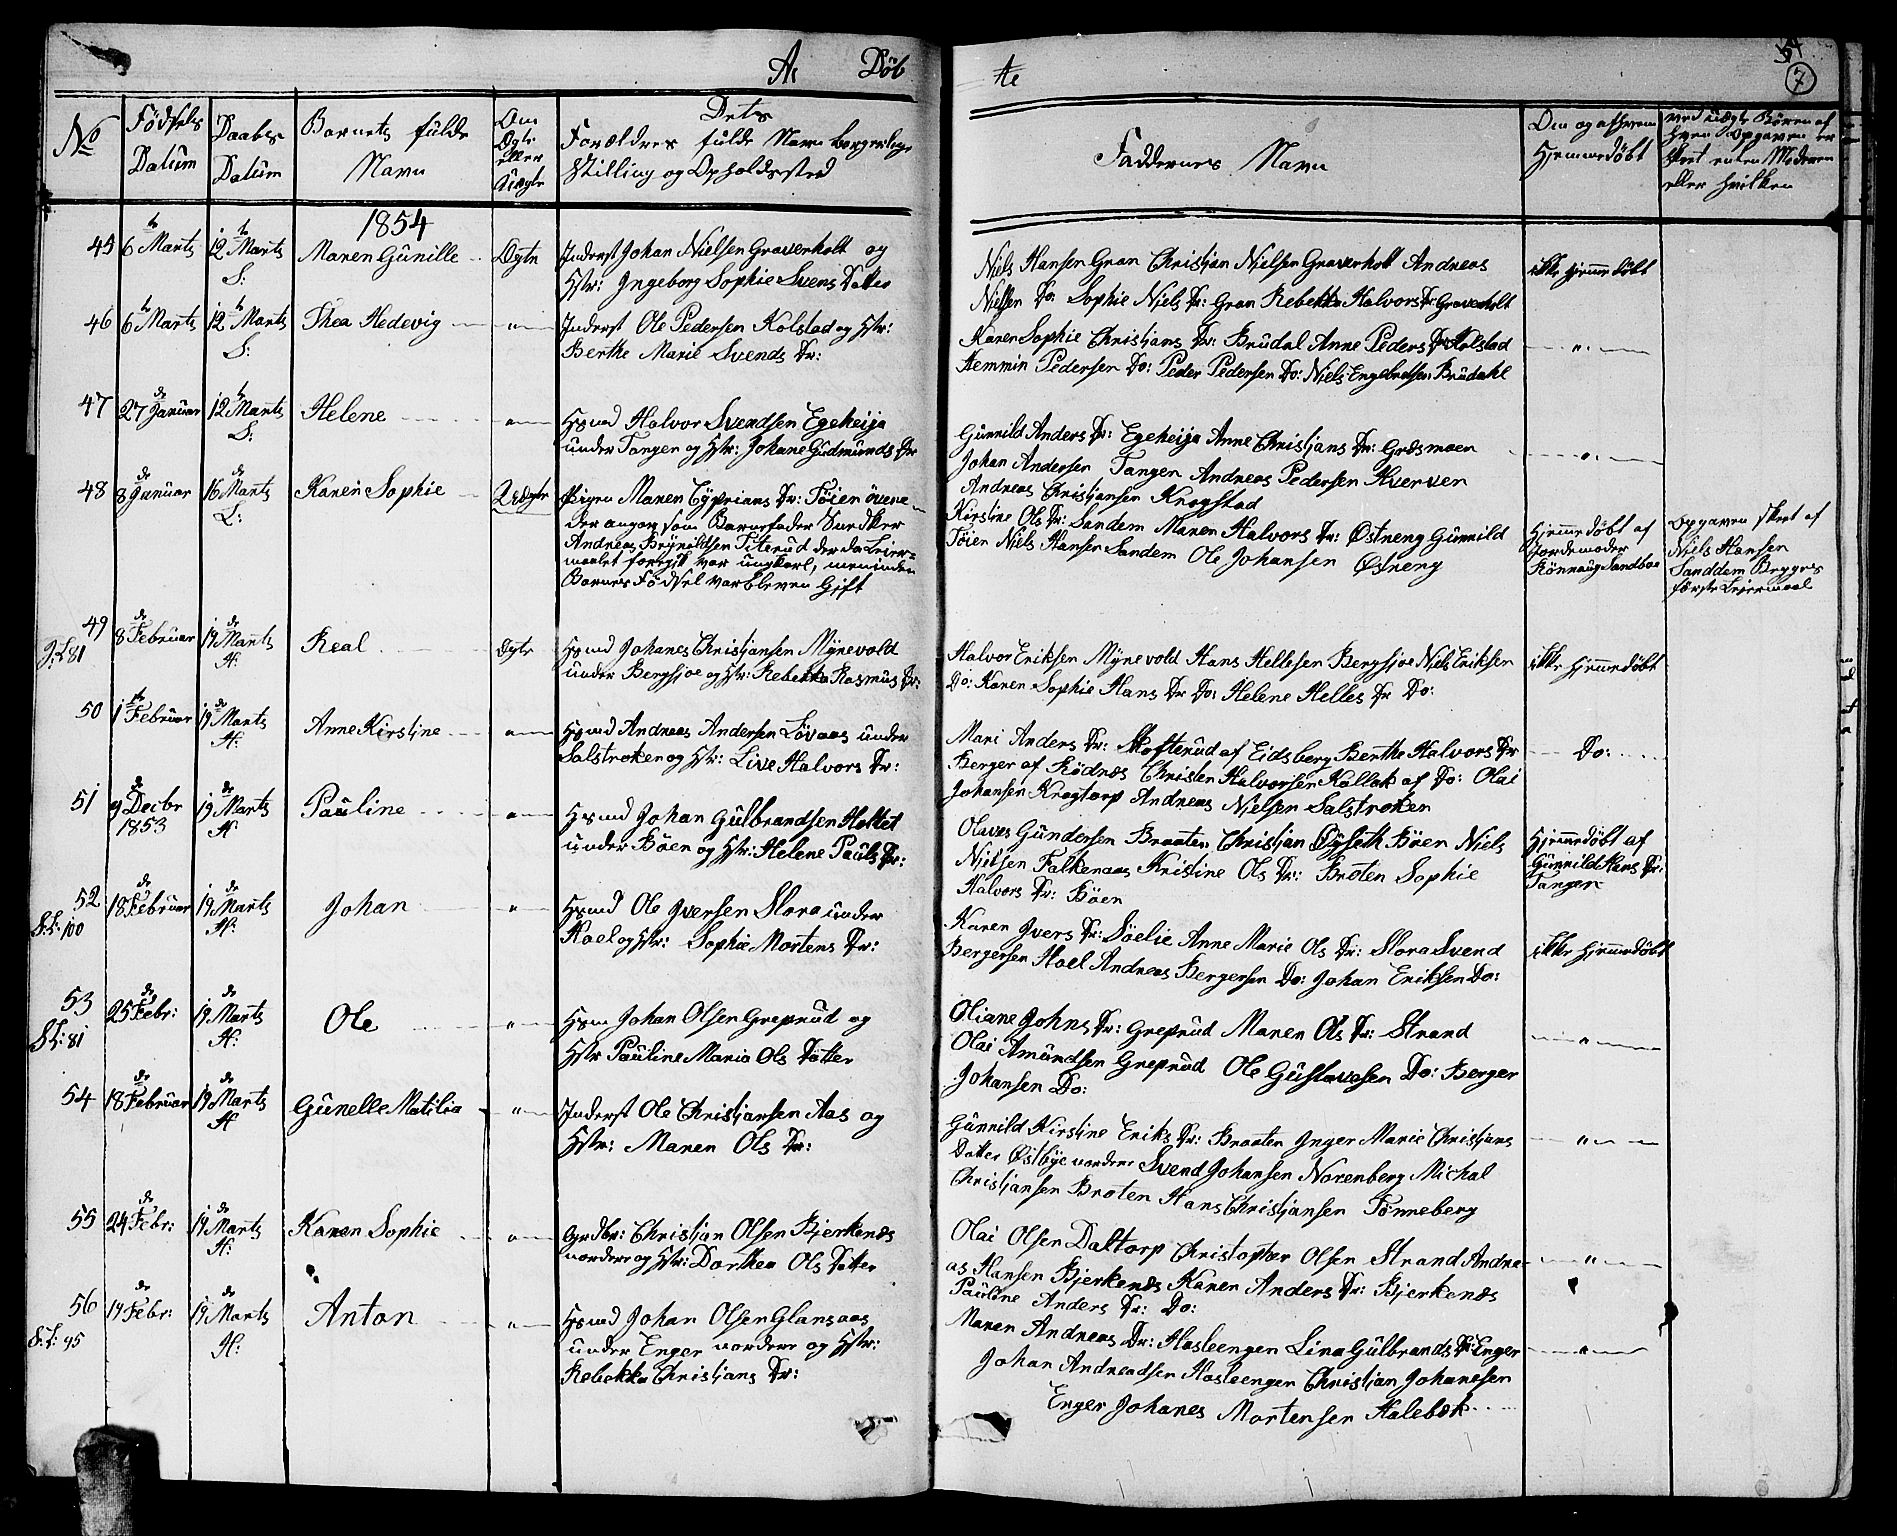 A: Døb
Ae
54
7
No
Fødsels Datum
Daabs Datum
Barnets fulde Navn
Om Ægte eller Uægte
Dets
Forældres fulde Navn borgerlige
Stilling og Opholdssted
Faddernes Navn
Om og af hvem
Hjemmedøbt
ved uægte Børn af
hvem Opgaven er
skeet enten Moderen
eller hvilken
1854
45 6 Marts 12 Marts S: Maren Gunille Ægte
Inderst Johan Nielsen Graverholt og
Hstr: Ingeborg Sophie Svens Datter
Niels Hansen Gran Christjan Nielsen Graverholt Andreas
Nielsen Do: Sophie Niels Dr: Gran Rebekka Halvors Dr Graverholt
ikke hjemmedøbt
46 6 Marts 12 Marts S: Thea Hedevig "
Inderst Ole Pedersen Kolstad og Hstr:
Berthe Marie Svends Dr:
Karen Sophie Christjans Dr: Brudal Anne Peders Dr Kolstad
Hemmin Pedersen Do: Peder Pedersen Do: Niels Engebretsen Brudahl
"
47 27 de Januar 12 Marts S: Helene "
Hsmd Halvor Svendsen Egeheija
under Tangen og Hstr: Johane Gudmunds Dr
Gunnild Anders Dr: Egeheija Anne Christjans Dr: Græsmoen
Johan Andersen Tangen Andreas Pedersen Kverven
Andreas Christjansen Krogstad
"
48 8 de Januar 16 de Marts L: Karen Sophie Uægte
Pigen Maren Cyprians Dr: Tøien øvre
der angav som Barnefader Snedker
Andreas Brynildsen Titerud der da Leier-
maalet foregik var ungkarl, men inden
Barnets Fødsel var bleven Gift
Kirstine Ols Dr: Sandem Maren Halvors Dr: Østneng Gunnild
Tøien Niels Hansen Sandem Ole Johansen Østneng
Hjemmedøbt af
Jordemoder
Rønnaug Sandboe
Opgaven skeet af
Niels Hansen
Sanddem Begges
første Leiermaal
49 8 de Februar 19 de Marts H: Real Ægte
J:L 81
Hsmd Johanes Christjansen Mynevold
under Bergsjøe og Hstr: Rebekka Rasmus Dr:
Halvor Eriksen Mynevold Hans Hellesen Bergsjøe Niels Eriksen
Do: Karen Sophie Hans Dr Do: Helene Helles Dr Do:
ikke hjemmedøbt
50 1 Februar 19 de Marts H: Anne Kirstine "
Hsmd Andreas Andersen Løvaas under
Salstroken og Hstr: Live Halvors Dr:
Mari Anders Dr: Skofterud af Eidsberg Berthe Halvors Dr
Berger af Rødnæs Christen Halvorsen Kallak af Do: Olai
Johansen Krogtorp Andreas Nielsen Salstroken
Do:
51 9 de Decbr 1853 19 de Marts H Pauline "
Hsmd Johan Gulbrandsen Holtet
under Bøen og Hstr: Helene Pauls Dr:
Olaves Gundersen Braaten Christjan Øyseth Bøen Niels
Nielsen Falkenaas Kristine Ols Dr: Broten Sophie
Halvors Dr: Bøen
Hjemmedøbt af
Gunnild Hans Dr:
Tangen
52 18 de Februar 19 de Marts H: Johan "
S:L: 100
Hsmd Ole Iversen Slora under
Hoel og Hstr: Sophie Mortens Dr:
Karen Ivers Dr: Søelie Anne Marie Ols Dr: Slora Svend
Bergersen Hoel Andreas Bergersen Do: Johan Eriksen Do:
ikke hjemmedøbt
53 25 de Febr: 19 de Marts H: Ole "
S L: 81
Hsm Johan Olsen Greprud og
Hstr Pauline Maria Ols Datter
Oliane Johns Dr: Greprud Maren Ols Dr: Strand
Olai Amundsen Greprud Ole Gustavesen Do: Berger
Johansen Do:
"
54 18 de Februar 19 de Marts H Gunelle Matilia "
Inderst Ole Christjansen Aas og
Hstr: Maren Ols Dr:
Gunnild Kirstine Eriks Dr: Braaten Inger Marie Christjans
Datter Østbye nordere Svend Johansen Norenberg Michal
Christjansen Broten Hans Christjansen Tønneberg
"
55 24 de Febr: 19 de Marts H: Karen Sophie "
Grdbr: Christjan Olsen Bjerkenæs
nordere og Hstr: Dorthea Ols Datter
Olai Olsen Daltorp Christopher Olsen Strand Andre-
as Hansen Bjerkenæs Karen Anders Dr: Bjerkenæs
Pauline Anders Dr: Do:
"
56 19 de Febr: 19 de Marts H: Anton "
S:L: 95
Hsmd Johan Olsen Glansaas
under Enger nordere og Hstr:
Rebekka Christjans Dr:
Maren Andreas Dr: Hasleengen Lina Gulbrands Dr: Enger
Johan Andreadsen Hasleengen Christjan Johanesen
Enger Johanes Mortensen Halebæk
"